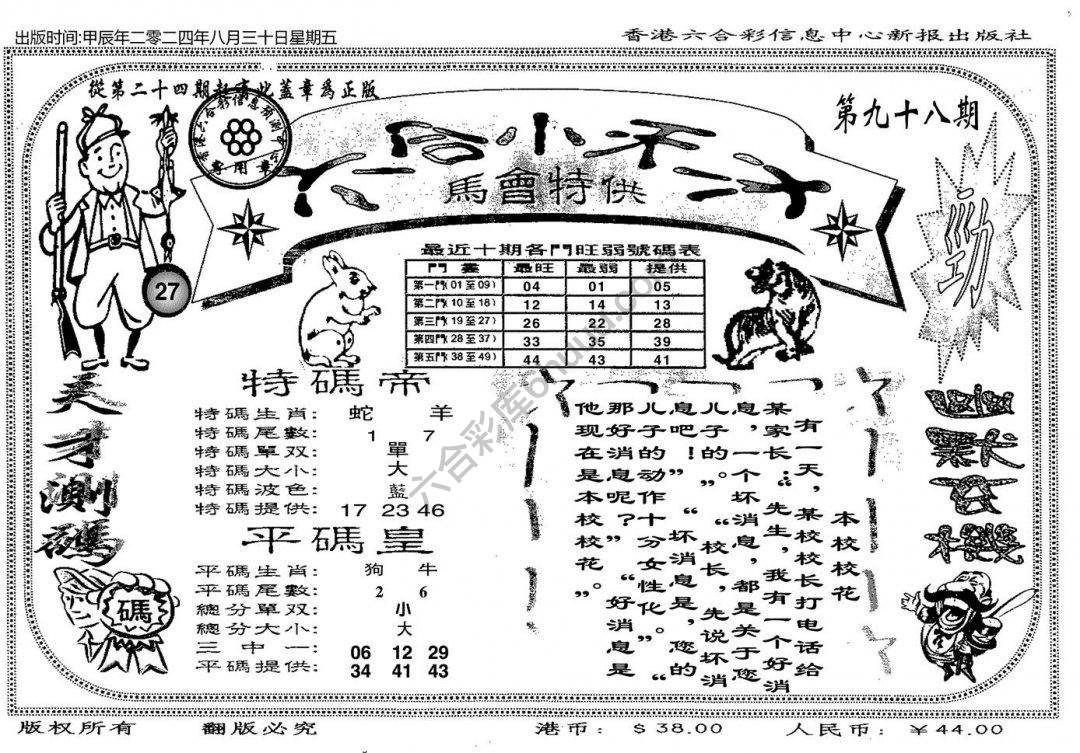 出版时间:甲辰年二零二四年八月三十日星期五
香港六合彩信息中心新报出版社
從第二十四期起認此蓋章爲正版
第九十八期
六合小禾才
馬會特供
專用章
27
勁
最近十期各門旺弱號碼表
門畫 最旺 最弱 提供
第一門(01至09) 04 01 05
第二門(10至18) 12 14 13
第三門(19至27) 26 22 28
第四門(28至37) 33 35 39
第五門(38至49) 44 43 41
天才測碼
特碼帝
特碼生肖: 蛇 羊
特碼尾數: 1 7
特碼單双: 單
特碼大小: 大
特碼波色: 藍
特碼提供: 17 23 46
平碼皇
平碼生肖: 狗 牛
平碼尾數: 2 6
總分單双: 小
總分大小: 大
三中一: 06 12 29
平碼提供: 34 41 43
碼
本校校花
有一天，某校校长打电话给
某家长：“先生，我有一个好消
息，一个坏消息，都是关于您
儿子的。”“校长，先说坏消
息吧！”“坏消息是，您的
儿子的动作十分女性化。”
那好消息呢？”“好消息是
他现在是本校校花。”
幽默玄機
六合彩库6huuu.com
版权所有
翻版必究
港币: $38.00
人民币: ¥44.00